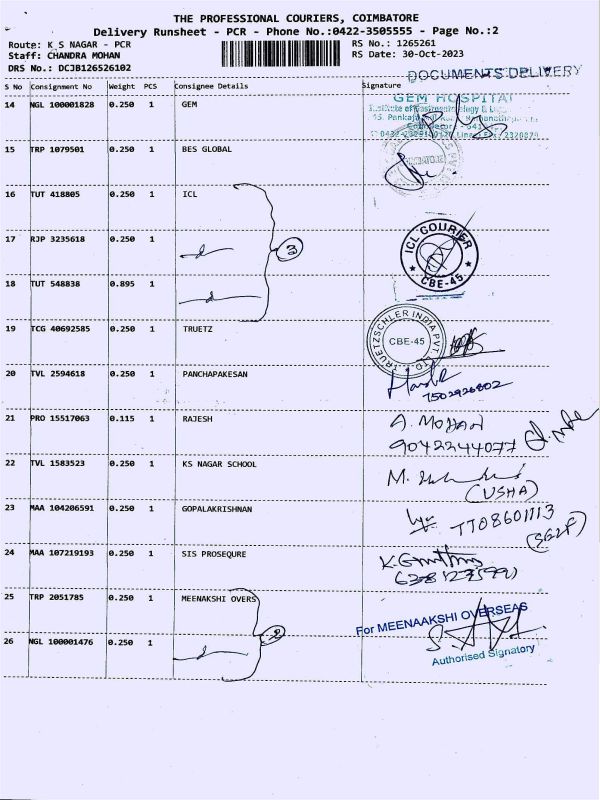 THE PROFESSIONAL COURIERS, COIMBATORE
Delivery Runsheet - PCR - Phone No.:0422-3505555 - Page No.:2
Route: K S NAGAR - PCR RS No.: 1265261
Staff: CHANDRA MOHAN RS Date: 30-Oct-2023
DRS No.: DCJB126526102
DOCUMENTS DELIVERY
S No Consignment No Weight PCS Consignee Details Signature
14 NGL 100001828 0.250 1 GEM
GEM HOSPITAL
15 TRP 1079501 0.250 1 BES GLOBAL
16 TUT 418805 0.250 1 ICL
17 RJP 3235618 0.250 1
3
ICL COURIER
CBE-45
18 TUT 548838 0.895 1
19 TCG 40692585 0.250 1 TRUETZ
TRUETZSCHLER INDIA PVT. LTD.
CBE-45
20 TVL 2594618 0.250 1 PANCHAPAKESAN
7502926802
21 PRO 15517063 0.115 1 RAJESH
A. MOHAN
9042244077
22 TVL 1583523 0.250 1 KS NAGAR SCHOOL
M.
(USHA)
23 MAA 104206591 0.250 1 GOPALAKRISHNAN
7708601113
24 MAA 107219193 0.250 1 SIS PROSEQURE
25 TRP 2051785 0.250 1 MEENAKSHI OVERS
2
For MEENAAKSHI OVERSEAS
26 NGL 100001476 0.250 1
Authorised Signatory